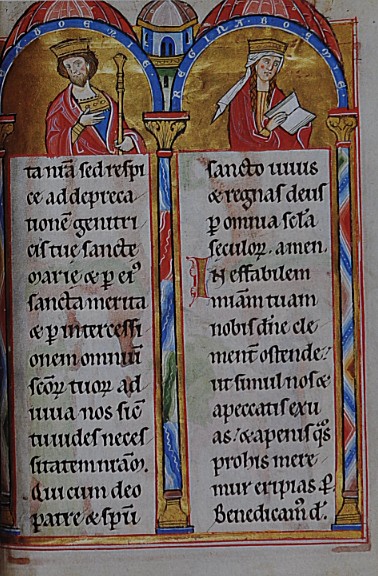 REX BOEMIE
REGINA BOEME
taniā sed respi
ce ad depreca
tionē genitri
cis tue sancte
marie & p ei᷒
sancta merita
& p intercessi
onem omniū
scōꝝ tuoꝝ ad
iuua nos sic̄
tu uides neces
sitatem nrām.
Qui cum deo
patre & spū
sancto uiuis
& regnas deus
p omnia scła
seculoꝝ. amen.
IN effabilem
miām tuam
nobis dn̄e cle
ment̄ ostende:
ut simul nos &
a peccatis exu
as: & a penis q̄s
pro his mere
mur eripias. P.
Benedicam᷒ d̄.